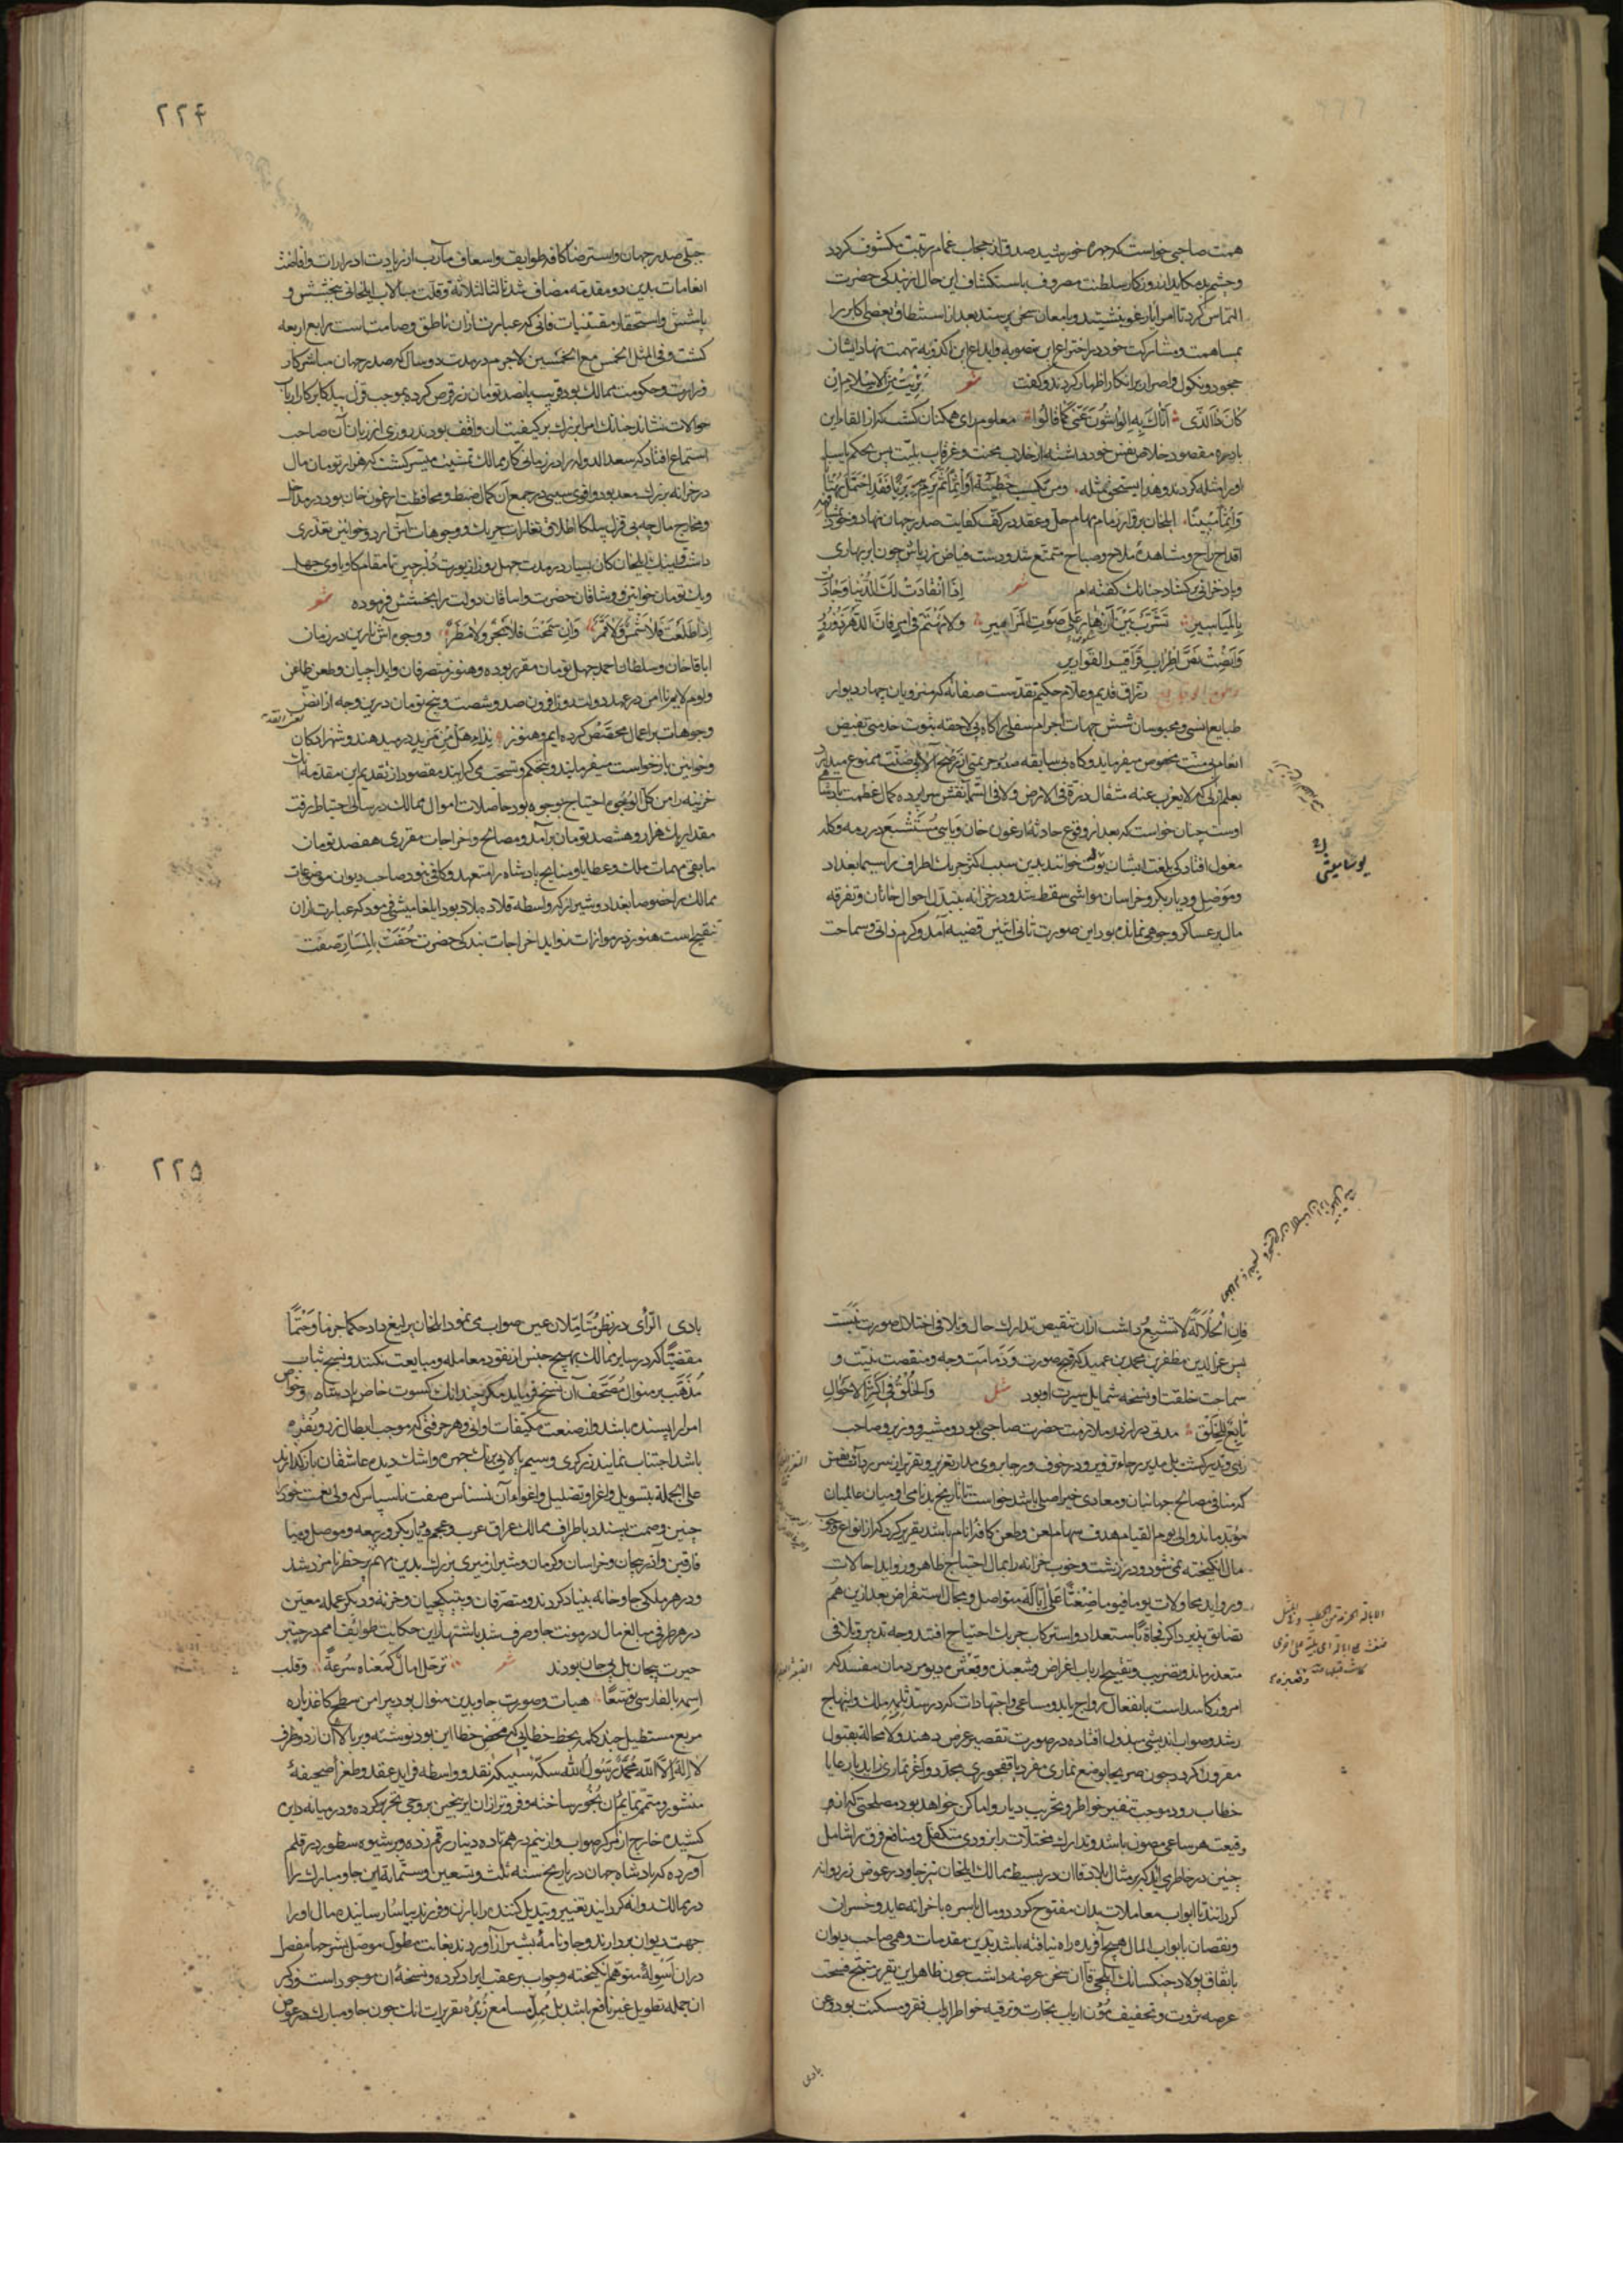 همت صاحبی خواست که چهره خورشید صدق از حجاب غمام ریبت مکشوف گردد
و چشم بد مکاید از روزگار سلطنت مصروف باستکشاف این حال از بندگی حضرت
التماس کرد تا امرا یارغو بنشینند و بامعان سخن پرسند بعد از استنطاق بعضی اکابر را
بمساهمت و مشارکت خود در اختراع این منصوبه و ابداع این اکذوبه تهمت نهاد ایشان
جحود و نکول و اصرار بر انکار اظهار کردند و گفت شعر برئت من الاسلام ان
کان ذا الذی اتاک به الواشون عنی کما قالوا معلوم رای همکنان گشت که از القاء این
نادره مقصود خلاص نفس خود داشته از خلاب محنت و غرقاب بلیت پس بحکم یاسا
او را مثله کردند و هذا یستحق مثله ومن یکسب خطیئة او اثما ثم یرم به بریئا فقد احتمل بهتانا
واثما مبینا ایلخان برقرار زمام مهام حل و عقد در کف کفایت صدر جهان نهاد و خود
اقداح راح و مشاهده ملاح و صباح متمتع شد و دست فیاض زرپاش چون ابر بهاری
و باد خزانی برگشاد چنانک گفته‌ام شعر اذا انقادت لک الدنیا وجادت
بالمیاسیر تشرب بین انهار علی صوت المزامیر ولا تهتم فی امر فان الدهر ذو زور
وابغضت نض اطراب قراقیر القواریر
رزاق قدیم و علام حکیم تقدست صفاته که منزویان چهار دیوار
طبایع انسی و محبوسان شش جهات اجرام سفلی را گاه بی لاحقه مثوبت خدمتی بفیض
انعام بی منت مخصوص میفرماید و گاه بی سابقه صدور جریمتی از رضح آلاء بی ضنت ممنوع میدارد
بعلم ازلی که لا یعزب عنه مثقال ذرة فی الارض ولا فی السما نقش سراپرده کمال عظمت پادشاهی
اوست چنان خواست که بعد از وقوع حادثه ارغون خان وبایی مستشبع در رمه و گله
مغول افتاد که بلغت ایشان یوت خوانند بدین سبب اکثر چریک اطراف سیما بغداد
و موصل و دیاربکر و خراسان مواشی سقط شد و در خزانه بتبدل احوال خانان و تفرقه
مال بر عساکر وجوهی نمانده بود این صورت ثانی اثنین قضیه آمد و کرم ذاتی و سماحت
۲۲۴
جبلی صدر جهان و استرضا کافه طوایف و اسعاف مآرب از زیادت ادرارات و افاضت
انعامات بدین دو مقدمه مضاف شد ثالثا لثلاثة و قلت مبالات ایلخانی ببخشش و
پاشش و استحقار مقتنیات فانی که عبارت از آن ناطق و صامتست رابع اربعه
گشت و فی المثل الخمس مع الخمسین لاجرم در مدت دو سال که صدر جهان مباشر کار
وزارت و حکومت ممالک بود قریب پانصد تومان زر قرض کرد بموجب قول بیلکا بر کار ارباب
حوالات نشاند چنانک امرا بزرک بر کیفیت آن واقف بودند روزی از زبان آن صاحب
استماع افتاد که سعدالدوله را در زمانی کار ممالک تمشیت میسر گشت که هزار تومان مال
در خزانه بزرک معد بود و اقوی سببی در جمع آن کمال ضبط و محافظت ارغون خان بود در مداخل
و مخارج مال چه بی قرار بیلکا اطلاق تغارات چریک و وجوهات آش اردو خواتین تعذری
داشت و اینک ایلخان کان یسار در مدت چهل روز از یورت قلبرچین تا مقام کاوباوی چهل
و یک تومان خواتین و وشاقان حضرت و ایناقان دولت را بخشش فرموده شعر
اذا طلعت فلا شمس ولا قمر وان سمحت فلا بحر ولا مطر و وجوه آش نارین در زمان
اباقاخان و سلطان احمد چهل تومان مقرر بوده و هنوز متصرفان و ایداجیان و طعن طاعن
و لوم لایم نا امن در عهد دولت روزافزون صد و شصت و پنج تومان درین وجه از انض
وجوهات بر اعمال مخصص کرده ایم و هنوز نداء هل من مزید در میدهند و شهزادگان
و خواتین بازخواست میفرمایند و تحکم و تسحب می کرایند مقصود از تقدیم این مقدمات
خزینه را من کل الوجوه احتیاج بوجوه بود حاصلات اموال ممالک در سالی احتیاط رفت
مقدار یک هزار و هشصد تومان برآمد و مصالح و اخراجات مقرری هفصد تومان
مابقی مهمات ملک و عطایا و منایح پادشاه را متعهد و کافی نبود صاحب دیوان موضوعات
ممالک را خصوصا بغداد و شیراز که واسطه قلاده بلاد بود ایلغامیشی فرمود که عبارت از آن
تنقیح است هنوز در موازات زواید اخراجات بندگی حضرت حفت بالمسار صفت
یوسامیشی
فان الجلالة لا تشبع داشت از آن تنقیص تدارک حال و تلافی اختلال صورت نبست
پس عزالدین مظفر بن محمد بن عمید که قبح صورت و دمامت وجه و منقصت نیت و
سماجت خلقت او نسخه شمایل سیرت او بود مثل والخلق فی اکثر الاحوال
تابع للخلق مدتی دراز در ملازمت حضرت صاحبی بود و مشیر و وزیر و صاحب
رای و تدبیر گشت بل مدبر رجاء تزویر و در خوف و رجا بر وی مدار تعزیر و تقریر ازین سر رد آفت نفس
که منافی مصالح جهانیان و معادی خیر اصلی باشد خواست تا تاریخ بدنامی او میان عالمیان
مؤبد ماند و الی یوم القیام هدف سهام لعن و طعن کافه انام باشد تقریر کرد که از انواع وجوه
مال انگیخته نمی شود و در زشت و خوب خزانه را بمال احتیاج ظاهر و زواید احالات
و روابد محاولات یوما فیوما ضغثا علی ابالة متواصل و مجال استقراض بعد ازین هم
تضایق پذیرد اگر فجاءة استعداد و استرکاب چریک احتیاج افتد وجه تدبیر و تلافی
متعذر ماند و تضریب و تقبیح ارباب اغراض و شعبذه و قعثره دیوس دمان مفسد که
امروز کاسد است بانفعال رواج یابد و مساعی و اجتهادات که در سد ثلمه ملک و انتهاج
رشد و صواب اندیشی مبذول افتاده در صورت تقصیر عرض دهند و لا محاله بقبول
مقرون گردد چون صریحا بوضع نماری مفرد یا قفچوری مجدد و اغرنماری زاید بارعایا
خطاب رود موجب تنفیر خواطر و تخریب دیار و اماکن خواهد بود مصلحتی که از و
وقیعت هر ساعی مصون باشد و تدارک مختلات را بزودی متکفل و منافع فرق را شامل
چنین در خاطر می آید که بر مثال بلاد قاآن در بسیط ممالک ایلخان نیز چاو در عوض زر روانه
گردانند تا ابواب معاملات بدان مفتوح گردد و مال باسره با خزانه عاید و خسران
و نقصان بابواب المال هیچ آفریده راه نیافته باشد بدین مقدمات وهمی صاحب دیوان
باتفاق پولاد چنکسانک ایلچی قاآن سخن عرضه داشت چون ظاهر این تقریر منتج فسحت
عرصه ثروت و تخفیف مؤن ارباب تجارت و ترفیه خواطر ارباب فقر و مسکنت بود و عن
بادی
۲۲۵
بادی الرای در نظر متاملان عین صواب می نمود ایلخان یرلیغ داد حکما جزما و حتما
مقضیا که در سایر ممالک بهیچ جنس از نقود معامله و مبایعت نکنند و نسیج ثیاب
مذهب بر منوال مصحف آن نسخ فرماید مگر چندانک کسوت خاص پادشاه و خواص
امرا را پسنده باشد و از صنعت مکیفات اوانی و هر حرفتی که موجب ابطال زر و نقره
باشد اجتناب نمایند زر گری و سیم پالایی برنک چهره و اشک دیده عاشقان بازگذارند
علی الجمله بتسویل و اغرا و تضلیل و اغواء آن نسناس صفت ناسپاس که ولی نعمت خود را
چنین وصمت پسندد باطراف ممالک عراق عرب و عجم و دیاربکر و ربیعه و موصل و میا
فارقین و آذربیجان و خراسان و کرمان و شیراز میری بزرک بدین مهم پرخطر نامزد شد
و در هر ملکی چاوخانه بنیاد کردند و متصرفان و بیتکچیان و خزنه و دیگر عمله معین
در هر طرفی مبالغ مال در مونت چاو صرف شد باشتهار این حکایت طوائف امم در چنبر
حیرت پیچان بل بی جان بودند شعر ترحل مال کمعناه سرعة و قلب
اسمه بالفارسی توسعا هیات و صورت چاو بدین منوال بود پیرامن سطح کاغذ پاره
مربع مستطیل چند کلمه بخط خطایی که محض خطا این بود نوشته و بر بالا آن از دو طرف
لا اله الا الله محمد رسول الله سکه سبیکه نقد و واسطه فراید عقد و طغرا صحیفه
منشور و متمم تمایم آن نخور ساخته و فروتر از آن ایرنجین دورجی تحریر کرده و در میانه دایره
کشیده خارج از مرکز صواب و از نیم درهم تا ده دینار رقم زده و بر شیوه سطور در قلم
آورده که پادشاه جهان در تاریخ سنه ثلث و تسعین و ستمایه این چاو مبارک را
در ممالک روانه گردانید تغییر و تبدیل کننده را با زن و فرزند بیاسا رسانیده مال او را
جهت دیوان بردارند و چاونامه بشیراز آوردند بغایت مطول موصل بشرحها مفصل
در آن اسوله متوهم انگیخته و جواب بر عقب ایراد کرده و نسخه آن موجود است ذکر
آن جمله تطویل غیر نافع باشد بل ممل مسامع زبده تقریرات آنک چون چاو مبارک در عوض